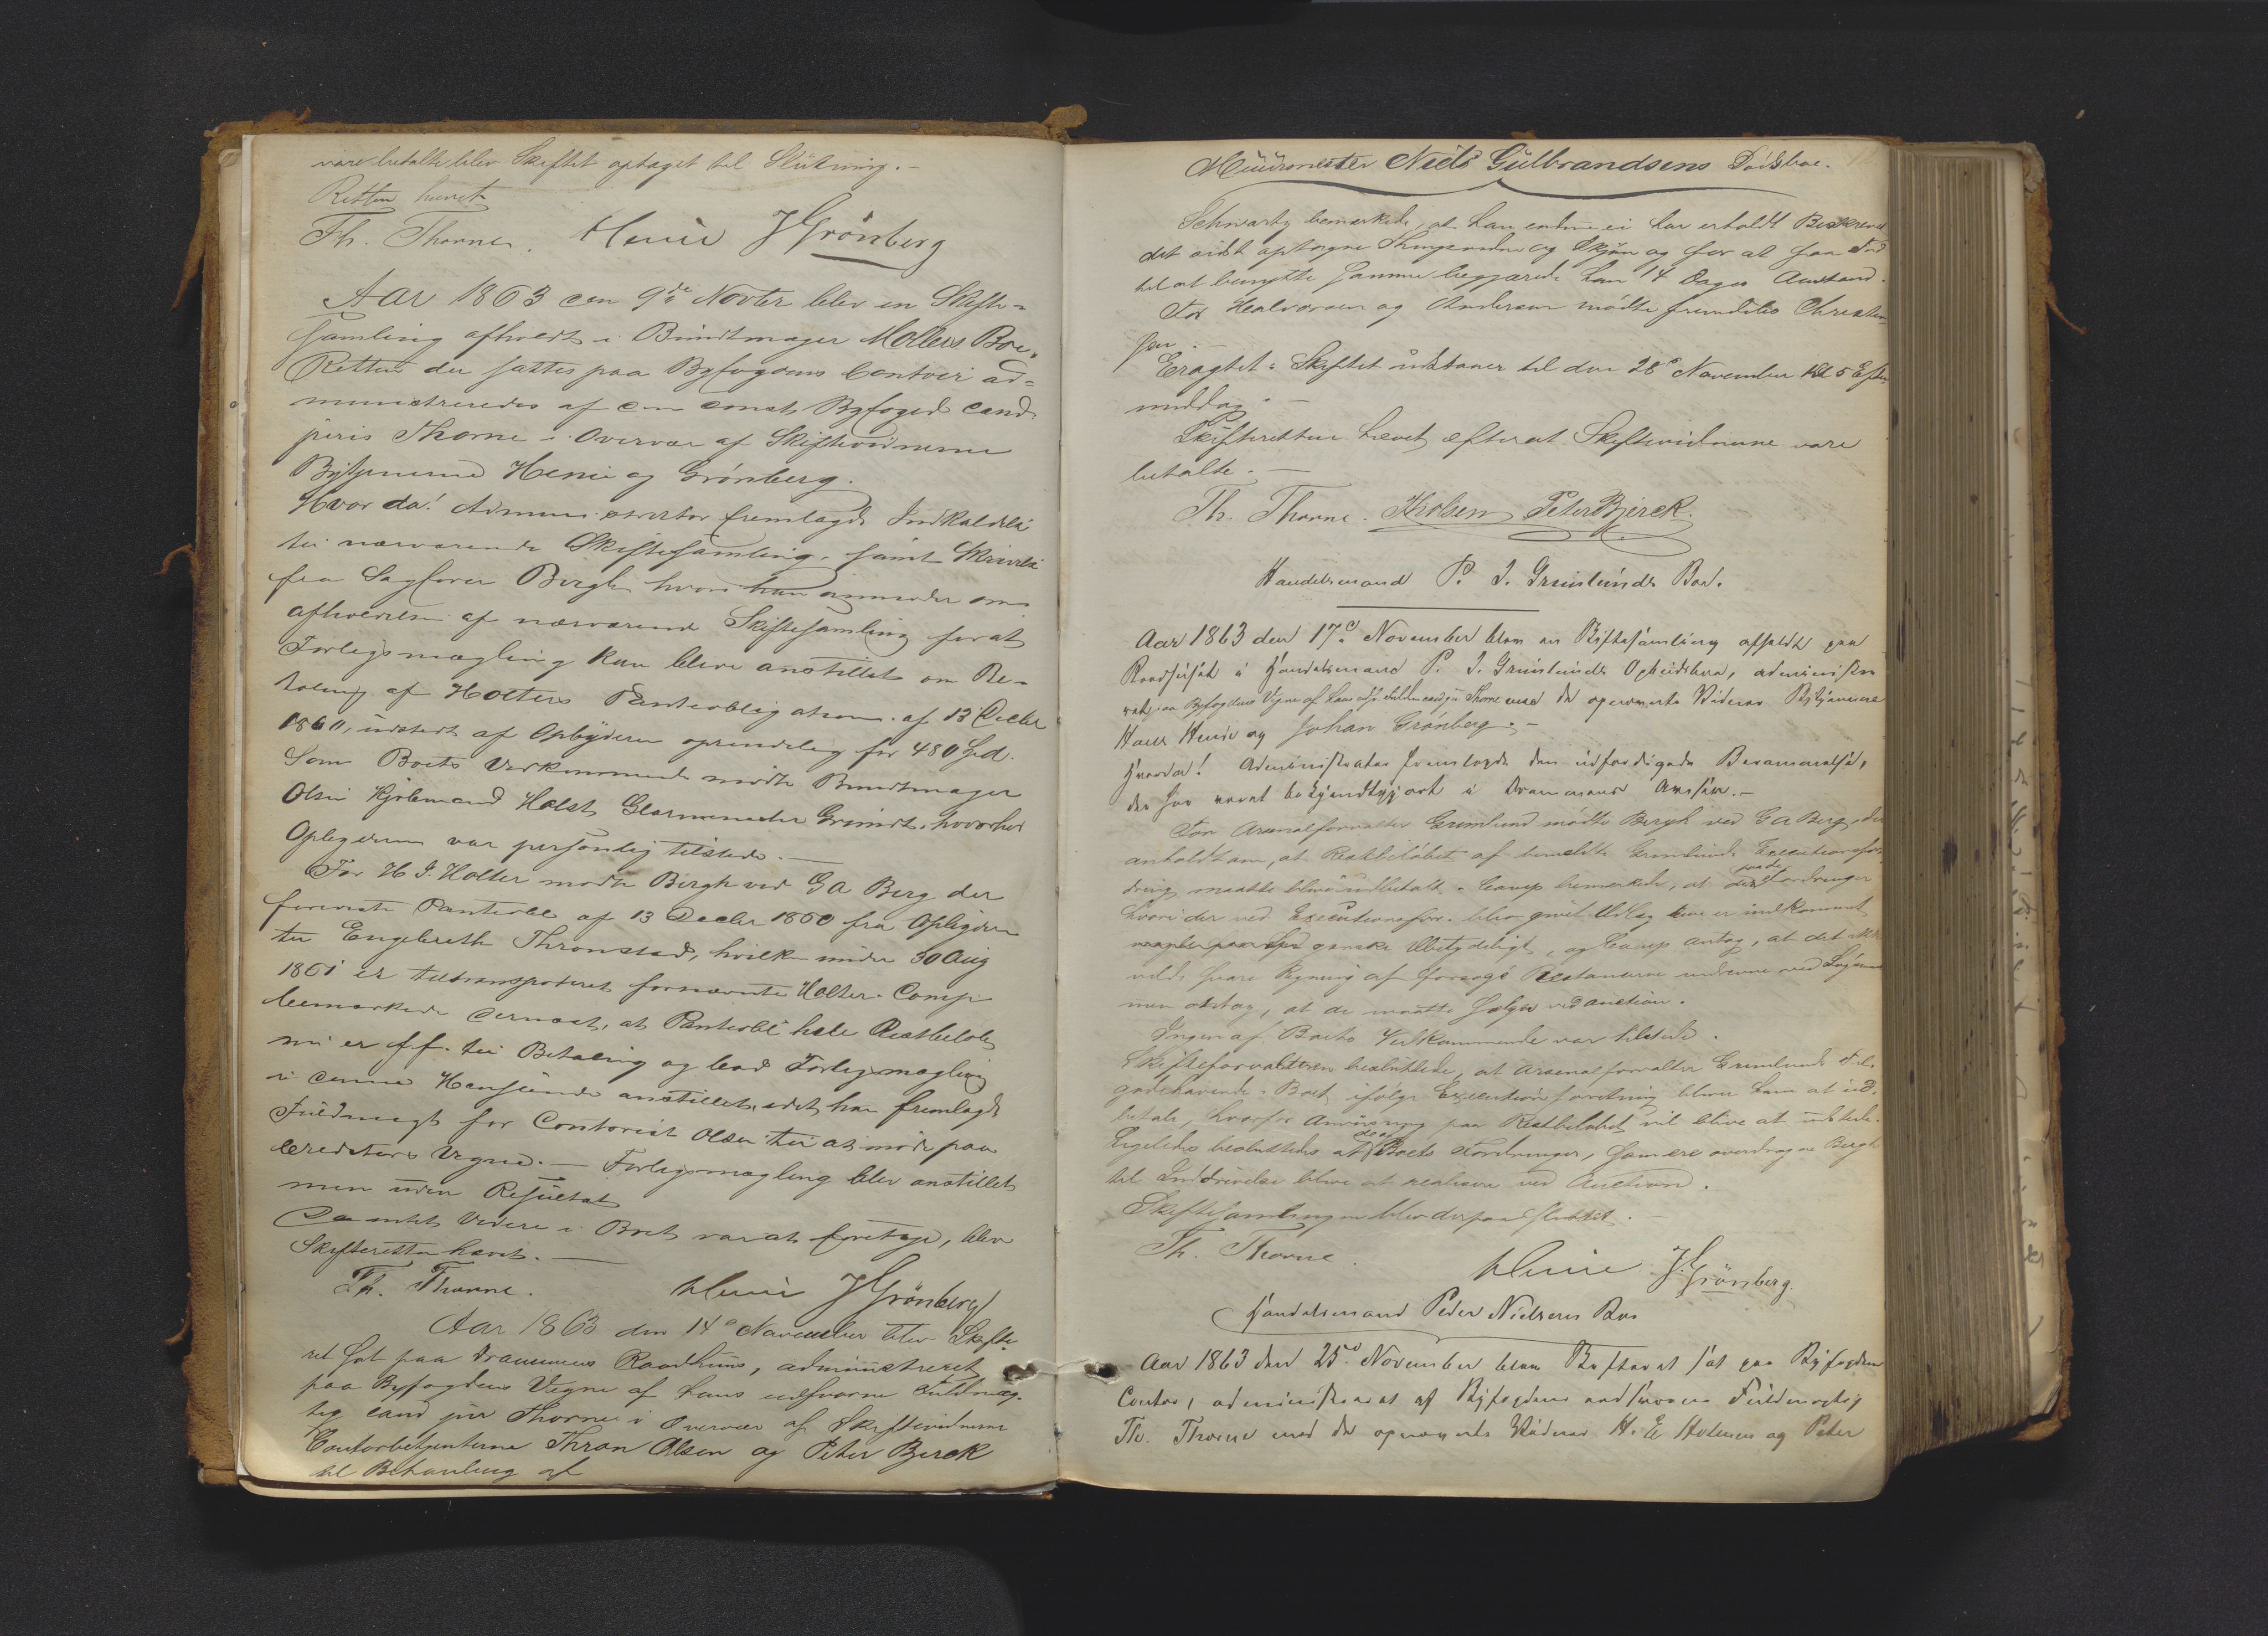 vare betalte blev Skiftet optaget til Slutning.-
Retten hævet
Th. Thorne. Henie J Grönberg
Aar 1863 den 9de Novbr blev en Skifte-
samling afholdt i Bundtmager Mollers Boe.
Retten der sattes paa Byfogdens Contoir ad-
ministreredes af den const. Byfoged Cand
juris Thorne i Overvær af Skiftevidnerne
Bytjenerne Henie og Grönberg.
Hvor da! Administrator fremlagde Indkaldelse
til nærværende Skiftesamling, samt Skrivelse
fra Sagfører Bergh hvori han anmoder om
afholdelse af nærværende Skiftesamling for at
Forligsmægling kan blive anstillet om Be-
taling af Holters Panteobligation af 13 Decbr
1860, udstedt af Opbyderen oprindelig for 480 Spd.
Som Boets Vedkommende mødte Bundtmager
Olsen Kjøbmand Holst, Glarmester Grindt, hvorhos
Opbyderen var personlig tilstede.-
For H. J. Holter mødte Bergh ved G A Berg der
foreviste Panteobl af 13 Decbr 1860 fra Opbyderen
til Engebreth Thronstad, hvilken under 30 Aug
1861 er tiltransporteret fornævnte Holter. Comp.
bemærkede dernæst, at Panteobl hele Restbeløb
nu er ff. til Betaling og bad Forligsmægling
i denne Henseende anstillet, idet han fremlagde
Fuldmagt for Contorist Olsen til at møde paa
Creditors Vegne.- Forligsmægling blev anstillet
men uden Resultat
Da intet Videre i Boet var at foretage, blev
Skifteretten hævet.-
Th. Thorne. Henie J Grönberg
Aar 1863 den 14de November blev Skifte-
ret sat paa Drammens Raadhuus, administreret
paa Byfogdens Vegne af hans edsvorne Fuldmæg-
tig cand jur Thorne i Overvær af Skiftevidnerne
Contorbetjenterne Thron Olsen og Peter Bjerck
til Behandling af
Muurmester Niels Gulbrandsens Dödsboe.
Schwartz bemærkede, at han endnu ei har erholdt Beskrevet
det sidst optagne Thingsvidne og Skjøn og for at faa Tid
til at benytte samme begjærede han 14 Dages Anstand.
For Halvorsen og Andersen mödte fremdeles Christen-
sen.-
Eragtet: Skiftet udstaaer til den 28de November Kl 5 Efter-
middag.-
Skifteretten hævet efterat Skiftevidnerne vare
betalte.-
Th. Thorne. ThOlsen Peter Bjerck.
Handelsmand P. J. Grimlunds Boe.
Aar 1863 den 17de November blev en Skiftesamling afholdt paa
Raadhuset i Handelsmand P. J. Grimlunds Opbudsboe, administre-
ret paa Byfogdens Vegne af hans edsv. Fuldm cand jur Thorne med de opnævnte Vidner Bytjenerne
Hans Henie og Johan Grönberg.-
Hvorda! Administrator fremlagde den udfærdigede Berammelse,
der har været bekjendtgjort i Drammens Avis.-
For Arsenalforvalter Grimlund mødte Bergh ved G A Berg, der
anholdt om, at Restbeløbet af bemeldte Grimlunds Executionsfor-
dring maatte blive udbetalt. Comp bemærkede, at paa de Fordringer
hvori der ved Executionsforr. blev givet Udlæg kun er indkommet
ganske Ubetydeligt, og Comp antog, at det ikke
vilde svare Regning at forsøge Restancerne inddrevne ved Lovsøgning
men antog, at de maatte sælges ved auction.
Ingen af Boets Vedkommende var tilstede.
Skifteforvalteren besluttede, at Arsenalforvalter Grimlunds Til-
godehavende i Boet ifølge Executionsforretning bliver ham at ud-
betale, hvorfor Anviisning paa Restbeløbet vil blive at udstede.
Ligeledes besluttedes at de af Boets Fordringer, som ere overdragne Bergh
til Inddrivelse blive at realisere ved Auction.
Skiftesamlingen blev derpaa sluttet.-
Th. Thorne. Henie J. Grönberg.
Handelsmand Peder Nielsens Boe
Aar 1863 den 25de November blev Skifteret sat paa Byfogdens
Contor, administreret af Byfogdens edsvorne Fuldmægtig
Th. Thorne med de opnævnte Vidner H. E. Holmen og Peter